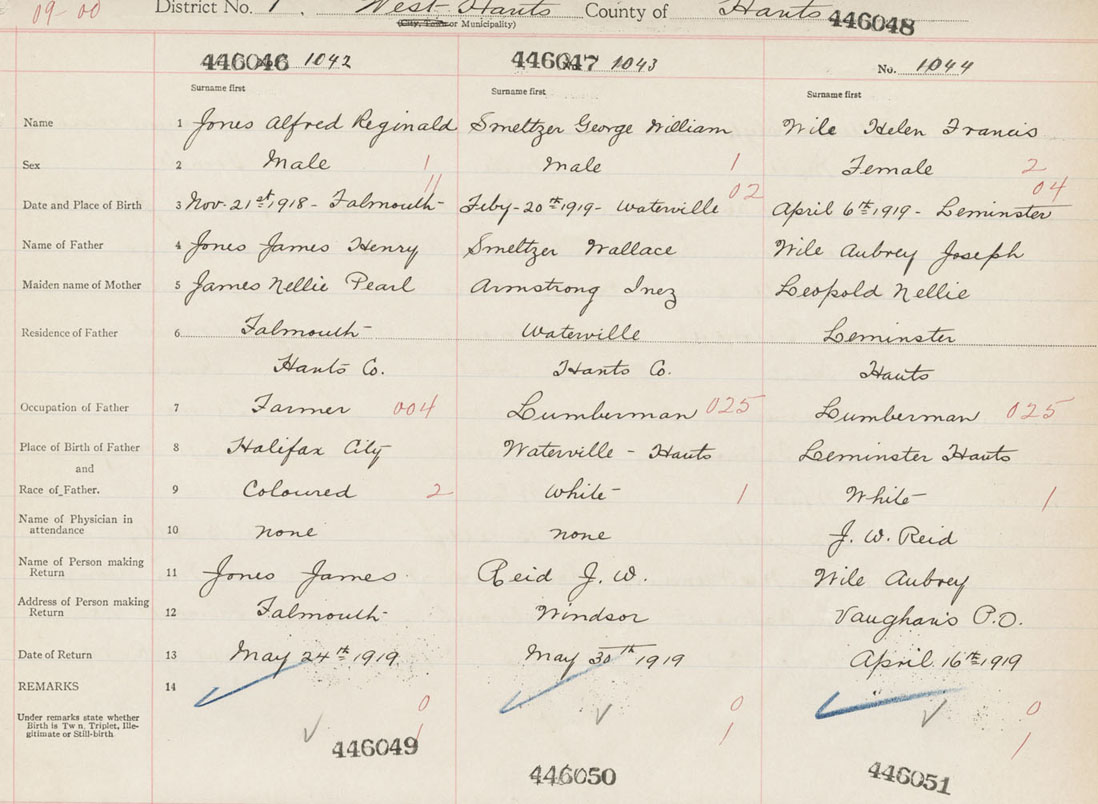 09-00 District No. 1. West Hants County of Hants
(City, Town or Municipality) 446048
446046 1042 446047 1043 No. 1044
Surname first Surname first Surname first
Name 1 Jones Alfred Reginald Smeltzer George William Wile Helen Francis
Sex 2 Male 1 Male 1 Female 2
11 02 04
Date and Place of Birth 3 Nov. 21st 1918 - Falmouth Feby - 20th 1919 - Waterville April 6th 1919 - Leminster
Name of Father 4 Jones James Henry Smeltzer Wallace Wile Aubrey Joseph
Maiden name of Mother 5 James Nellie Pearl Armstrong Inez Leopold Nellie
Residence of Father 6 Falmouth Waterville Leminster
Hants Co. Hants Co. Hants
Occupation of Father 7 Farmer 004 Lumberman 025 Lumberman 025
Place of Birth of Father 8 Halifax City Waterville - Hants Leminster Hants
and
Race of Father. 9 Coloured 2 White 1 White 1
Name of Physician in
attendance 10 none none J. W. Reid
Name of Person making
Return 11 Jones James. Reid J. W. Wile Aubrey
Address of Person making
Return 12 Falmouth Windsor Vaughan's P.O.
Date of Return 13 May 24th 1919 May 30th 1919 April 16th 1919
REMARKS 14
0 0 0
Under remarks state whether
Birth is Tw n, Triplet, Ille-
gitimate or Still-birth
1 1 1
446049 446050 446051